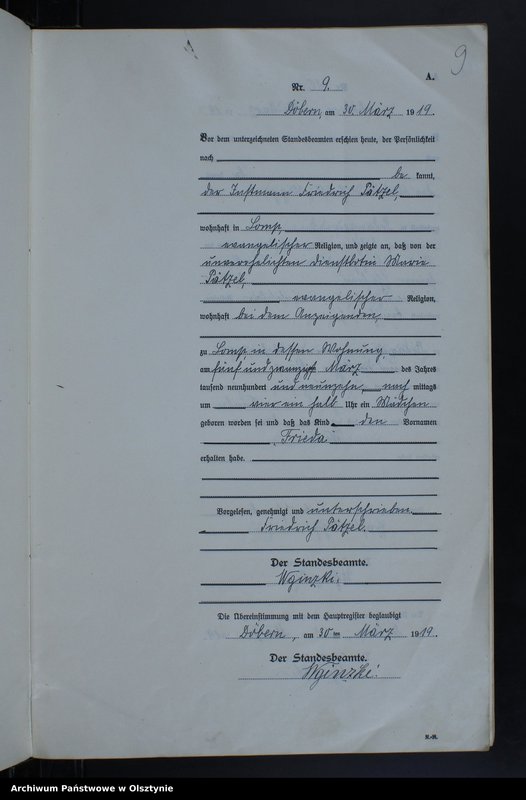 9
A.
Nr. 9.
Döbern, am 30. März 1919.
Vor dem unterzeichneten Standesbeamten erschien heute, der Persönlichkeit
nach
be kannt,
der Instmann Friedrich Pätzel,
wohnhaft in Lomp,
evangelischer Religion, und zeigte an, daß von der
unverehelichten Dienstbotin Marie
Pätzel,
evangelischer Religion,
wohnhaft bei dem Anzeigenden,
zu Lomp, in dessen Wohnung
am fünf und zwanzigsten März des Jahres
tausend neunhundert und neunzehn, nach mittags
um vier ein halb Uhr ein Mädchen
geboren worden sei und daß das Kind den Vornamen
Frieda
erhalten habe.
Vorgelesen, genehmigt und unterschrieben.
Friedrich Pätzel.
Der Standesbeamte.
Die Übereinstimmung mit dem Hauptregister beglaubigt
Döbern, am 30ten März 1919.
Der Standesbeamte.
Archiwum Państwowe w Olsztynie